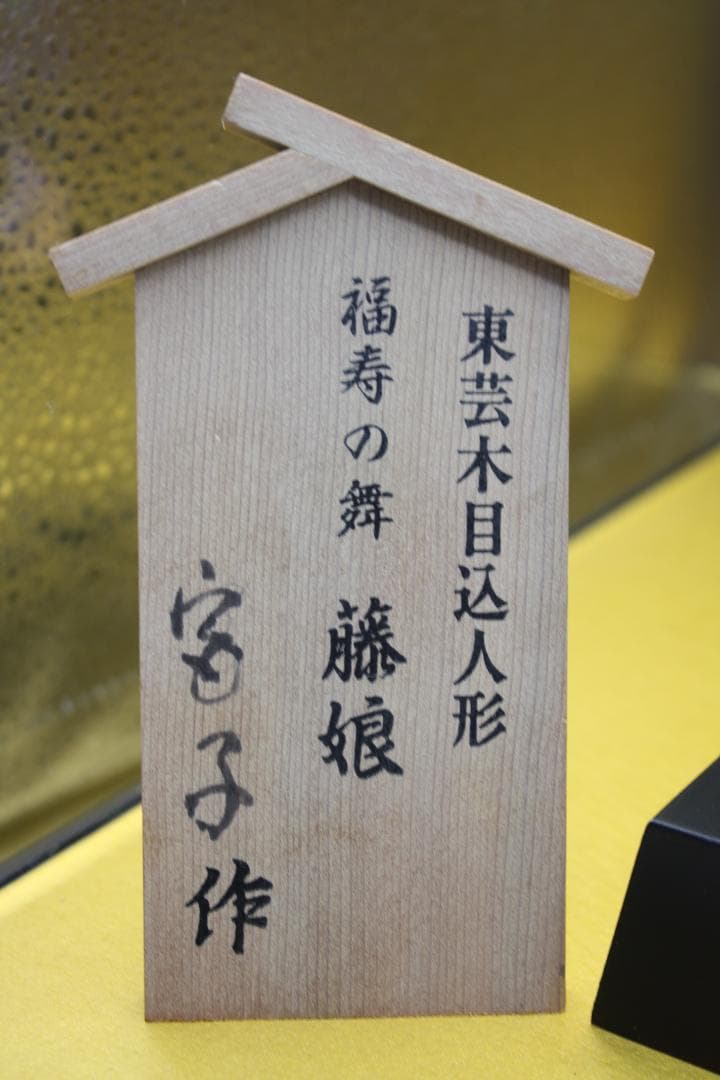 東芸木目込人形
福寿の舞 藤娘
富子作